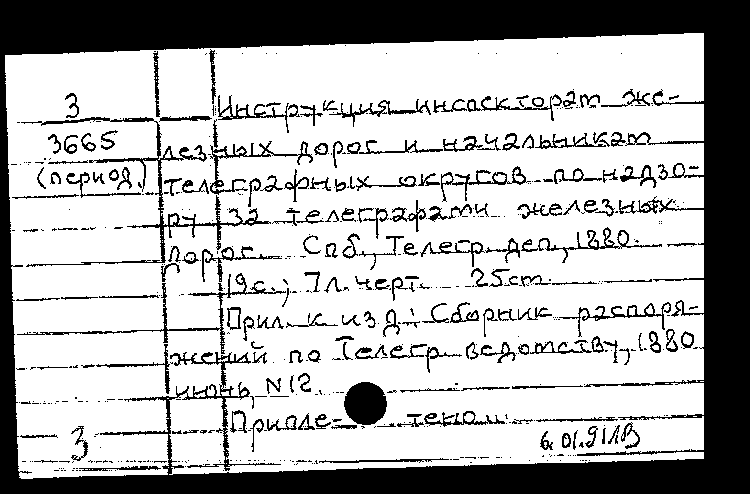 3
3665
(период.)
Инструкция инспекторам же-
лезных дорог и начальникам
телеграфных округов по надзо-
ру за телеграфами железных
дорог. Спб., Телегр. деп., 1880.
19с.; 7л. черт. 25cm.
Прил. к изд.: Сборник распоря-
жений по Телегр. ведомству, 1880
июнь, N12.
Припле- тено...
3